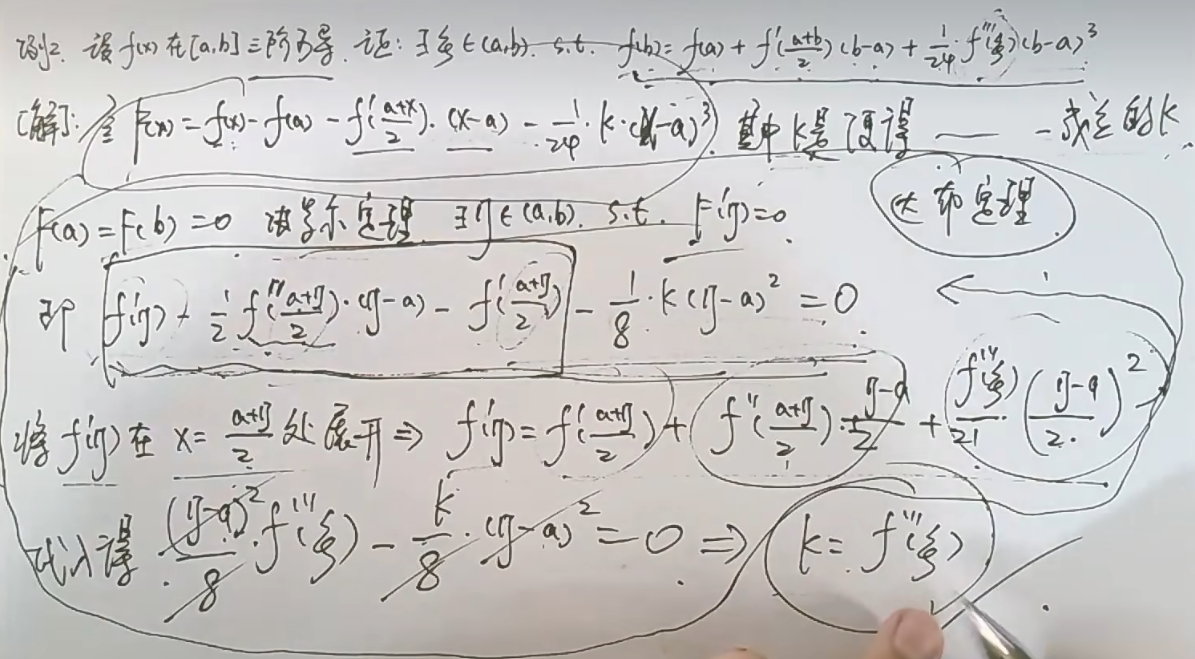 例2. 设 f(x) 在[a,b] 三阶可导. 证: ∃ξ∈(a,b). s.t. f(b) = f(a) + f'((a+b)/2)(b-a) + 1/24·f'''(ξ)(b-a)³
[解]: 令 F(x) = f(x) - f(a) - f'((a+x)/2)·(x-a) - 1/24·k·(x-a)³ 其中k是使得 —— 成立的k.
F(a) = F(b) = 0 由罗尔定理 ∃η∈(a,b). s.t. F'(η)=0.
大布定理
即 f'(η) - 1/2 f''((a+η)/2)·(η-a) - f'((a+η)/2) - 1/8·k(η-a)² = 0
将 f'(η) 在 x = (a+η)/2 处展开 ⇒ f'(η) = f'((a+η)/2) + f''((a+η)/2)·(η-a)/2 + f'''(ξ)/2! ((η-a)/2)²
代入得 (η-a)²/8·f'''(ξ) - k/8·(η-a)² = 0 ⇒ k = f'''(ξ)